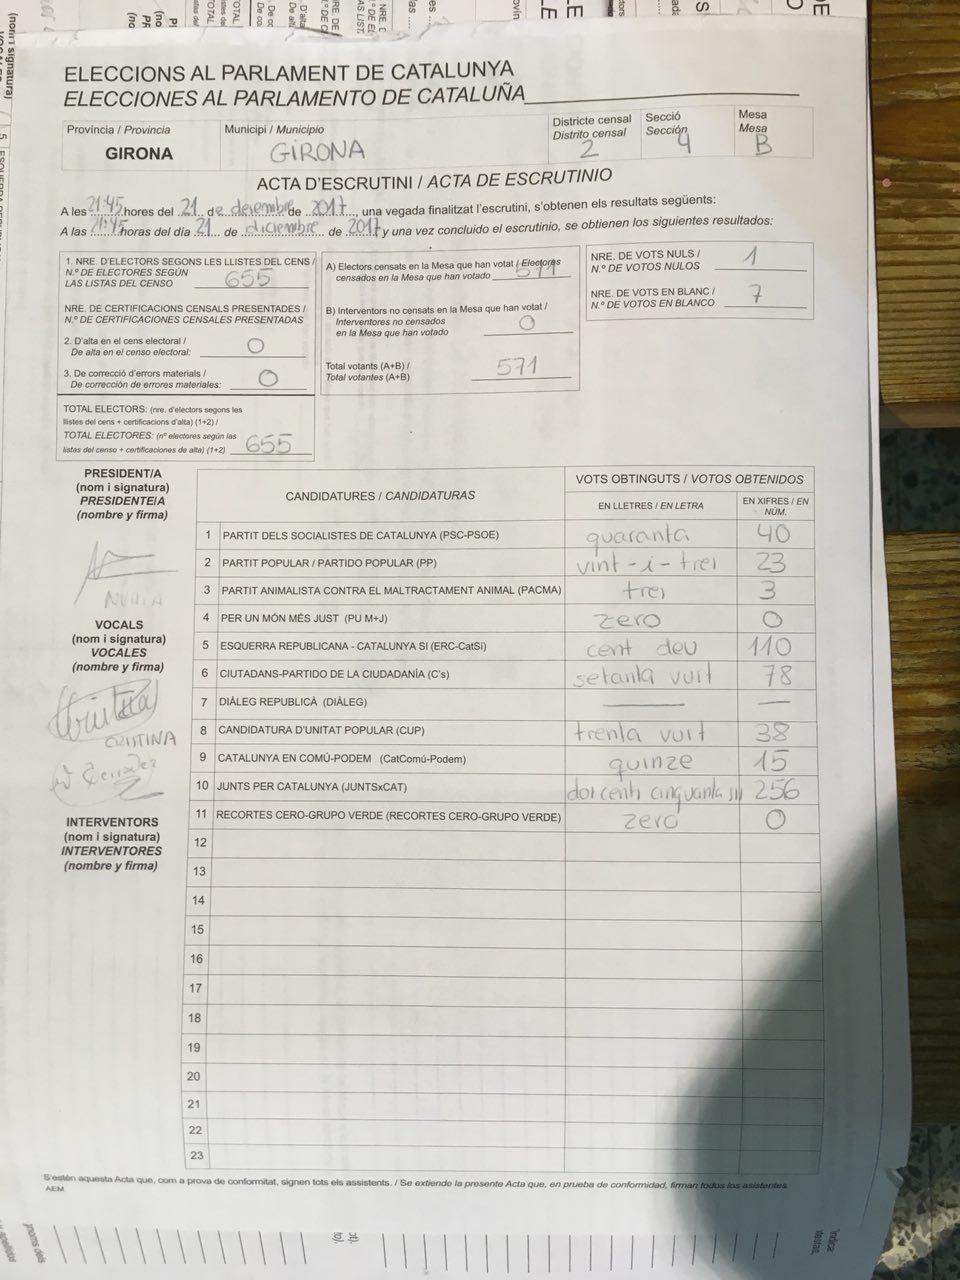 ELECCIONS AL PARLAMENT DE CATALUNYA
ELECCIONES AL PARLAMENTO DE CATALUÑA
Província / Provincia
GIRONA
Municipi / Municipio
GIRONA
Districte censal
Distrito censal
2
Secció
Sección
4
Mesa
Mesa
B
ACTA D'ESCRUTINI / ACTA DE ESCRUTINIO
A les 21:45 hores del 21 de desembre de 2017, una vegada finalitzat l'escrutini, s'obtenen els resultats següents:
A las 21:45 horas del día 21 de diciembre de 2017 y una vez concluido el escrutinio, se obtienen los siguientes resultados:
1. NRE. D'ELECTORS SEGONS LES LLISTES DEL CENS /
N.º DE ELECTORES SEGÚN
LAS LISTAS DEL CENSO 655
NRE. DE CERTIFICACIONS CENSALS PRESENTADES /
N.º DE CERTIFICACIONES CENSALES PRESENTADAS
2. D'alta en el cens electoral /
De alta en el censo electoral: 0
3. De correcció d'errors materials /
De corrección de errores materiales: 0
TOTAL ELECTORS: (nre. d'electors segons les
llistes del cens + certificacions d'alta) (1+2) /
TOTAL ELECTORES: (nº electores según las
listas del censo + certificaciones de alta) (1+2) 655
A) Electors censats en la Mesa que han votat / Electores
censados en la Mesa que han votado 571
B) Interventors no censats en la Mesa que han votat /
Interventores no censados
en la Mesa que han votado 0
Total votants (A+B) /
Total votantes (A+B) 571
NRE. DE VOTS NULS /
N.º DE VOTOS NULOS 1
NRE. DE VOTS EN BLANC /
N.º DE VOTOS EN BLANCO 7
PRESIDENT/A
(nom i signatura)
PRESIDENTE/A
(nombre y firma)
NURIA
VOCALS
(nom i signatura)
VOCALES
(nombre y firma)
CRISTINA
INTERVENTORS
(nom i signatura)
INTERVENTORES
(nombre y firma)
CANDIDATURES / CANDIDATURAS
VOTS OBTINGUTS / VOTOS OBTENIDOS
EN LLETRES / EN LETRA
EN XIFRES / EN
NÚM.
1 PARTIT DELS SOCIALISTES DE CATALUNYA (PSC-PSOE) quaranta 40
2 PARTIT POPULAR / PARTIDO POPULAR (PP) vint-i-tres 23
3 PARTIT ANIMALISTA CONTRA EL MALTRACTAMENT ANIMAL (PACMA) tres 3
4 PER UN MÓN MÉS JUST (PU M+J) zero 0
5 ESQUERRA REPUBLICANA - CATALUNYA SI (ERC-CatSí) cent deu 110
6 CIUTADANS-PARTIDO DE LA CIUDADANÍA (C's) setanta vuit 78
7 DIÀLEG REPUBLICÀ (DIÀLEG) — —
8 CANDIDATURA D'UNITAT POPULAR (CUP) trenta vuit 38
9 CATALUNYA EN COMÚ-PODEM (CatComú-Podem) quinze 15
10 JUNTS PER CATALUNYA (JUNTSxCAT) dos cents cinquanta sis 256
11 RECORTES CERO-GRUPO VERDE (RECORTES CERO-GRUPO VERDE) zero 0
12
13
14
15
16
17
18
19
20
21
22
23
S'estén aquesta Acta que, com a prova de conformitat, signen tots els assistents. / Se extiende la presente Acta que, en prueba de conformidad, firman todos los asistentes.
AEM